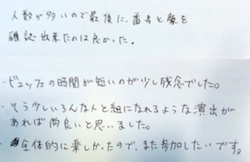 人数が多いので最後に、番号と顔を
確認出来たのは良かった。
・ビュッフェの時間が短いのが少し残念でした。
・もう少しいろんな人と組になれるような演出が
あれば尚良いと思いました。
・全体的に楽しかったので、また参加したいです。